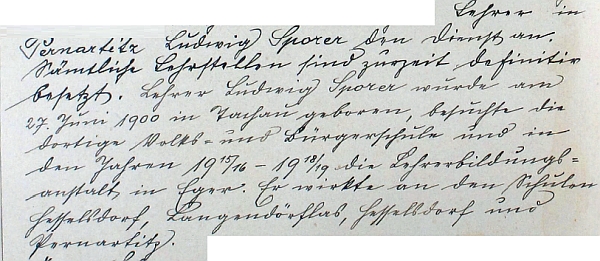 Lehrer in
Pernartitz Ludwig Sporer den Dienst an.
Sämtliche Lehrstellen sind zurzeit definitiv
besetzt. Lehrer Ludwig Sporer wurde am
27. Juni 1900 in Tachau geboren, besuchte die
dortige Volks- und Bürgerschule und in
den Jahren 1915/16 – 1918/19 die Lehrerbildungs-
anstalt in Eger. Er wirkte an den Schulen
Hesselsdorf, Langendörflas, Hesselsdorf und
Pernartitz.